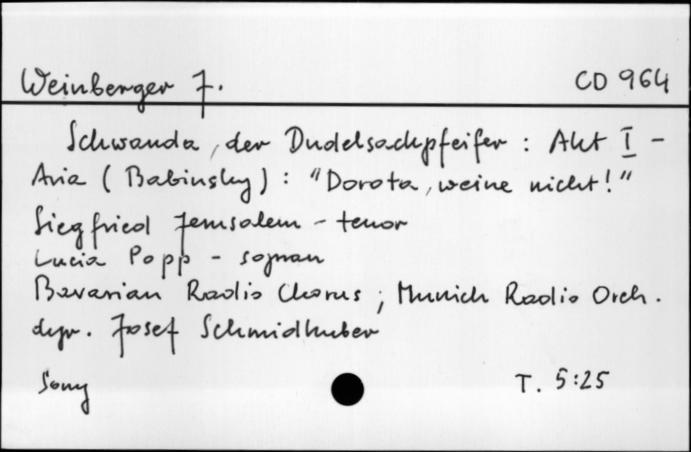 Weinberger J. CD 964
Schwanda, der Dudelsackpfeifer : Akt I -
Aria (Babinsky) : "Dorota, weine nicht!"
Siegfried Jerusalem - tenor
Lucia Popp - sopran
Bavarian Radio Chorus ; Munich Radio Orch.
dyr. Josef Schmidhuber
Sony T. 5:25